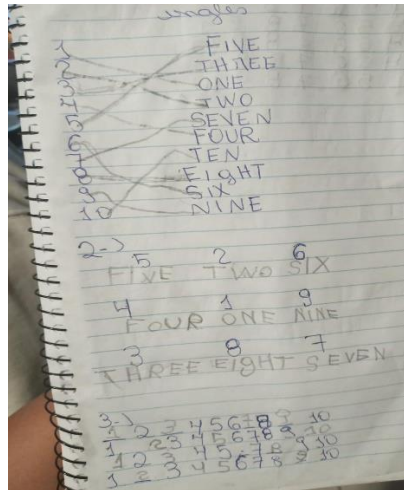 ingles
1 FIVE
2 THREE
3 ONE
4 TWO
5 SEVEN
6 FOUR
7 TEN
8 EIgHT
9 SIX
10 NINE
2-)
5 2 6
FIVE TWO SIX
4 1 9
FOUR ONE NINE
3 8 7
THREE EIgHT SEVEN
3-)
1 2 3 4 5 6 7 8 9 10
1 2 3 4 5 6 7 8 9 10
1 2 3 4 5 6 7 8 9 10
1 2 3 4 5 6 7 8 9 10